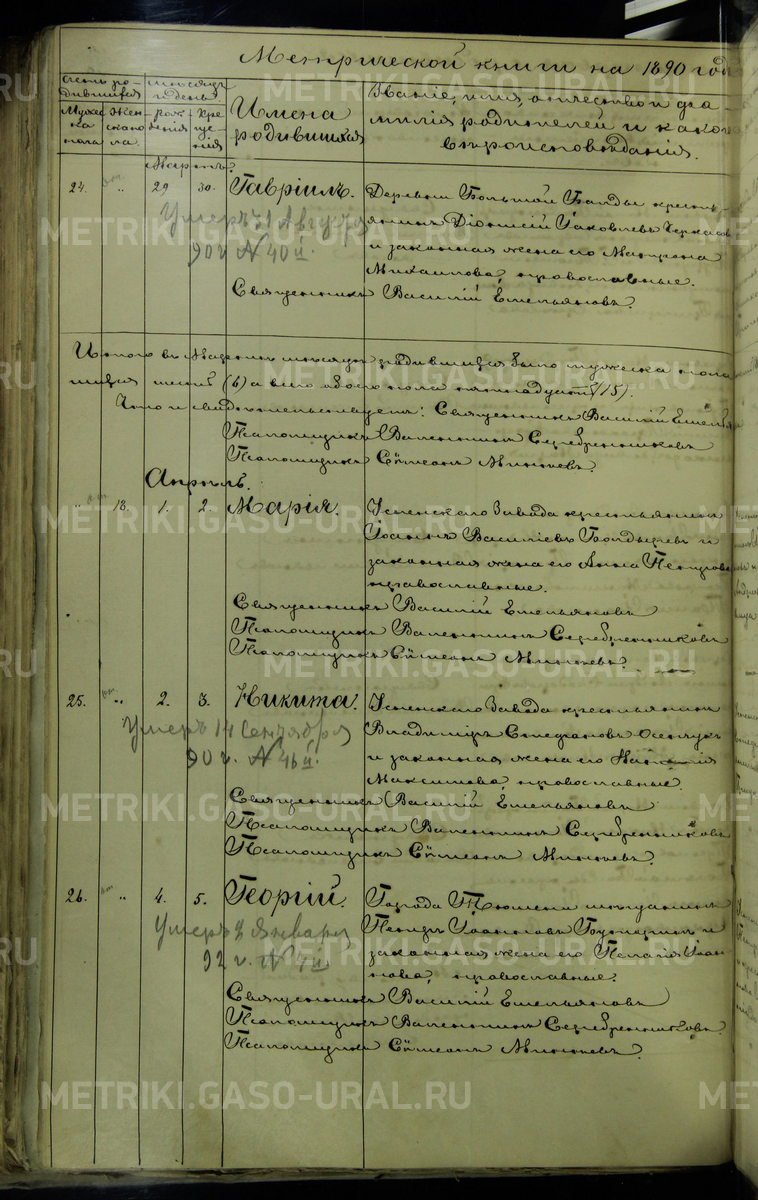 Метрической книги на 1890 годъ
Счетъ родившихся
Мѣсяцъ и день
Мужеска пола
Женскаго пола
рождения
крещения
Имена родившихся
Званіе, имя, отчество и фамилія родителей и какого вѣроисповѣданія.
Мартъ.
24. „ 29 30. Гавріилъ.
Деревни Большой Балды крестьянинъ Діонисій Іаковлевъ Черкасовъ
и законная жена его Матрона
Михаилова, православные.
Умеръ 21 Августа
90 г. № 40 й.
Священникъ Василій Емельяновъ.
Итого въ Мартѣ мѣсяцѣ родившихся было мужеска пола
шесть (6) а всего обоего пола пятнадцать (15).
Что и свидѣтельствуемъ: Священникъ Василій Емельяновъ
Псаломщикъ Валентинъ Серебренниковъ
Псаломщикъ Сѵмеонъ Минѣевъ.
Апрѣль.
„ 18. 1. 2. Марія.
Успенскаго Завода крестьянинъ
Іоаннъ Василіевъ Болдыревъ и
законная жена его Анна Петрова
православные.
Священникъ Василій Емельяновъ
Псаломщикъ Валентинъ Серебренниковъ
Псаломщикъ Сѵмеонъ Минѣевъ.
25. „ 2. 3. Никита.
Успенскаго Завода крестьянинъ
Владиміръ Стефановъ
и законная жена его Наталія
Максимова, православные.
Умеръ 14 Сентября
90 г. № 46 й.
Священникъ Василій Емельяновъ
Псаломщикъ Валентинъ Серебренниковъ
Псаломщикъ Сѵмеонъ Минѣевъ.
26. „ 4. 5. Георгій.
Города Тюмени мѣщанинъ
Петръ Іоанновъ и
законная жена его Пелагія Іоаннова, православные.
Умеръ 2 Января
92 г. № 4 й
Священникъ Василій Емельяновъ
Псаломщикъ Валентинъ Серебренниковъ
Псаломщикъ Сѵмеонъ Минѣевъ.
METRIKI.GASO-URAL.RU